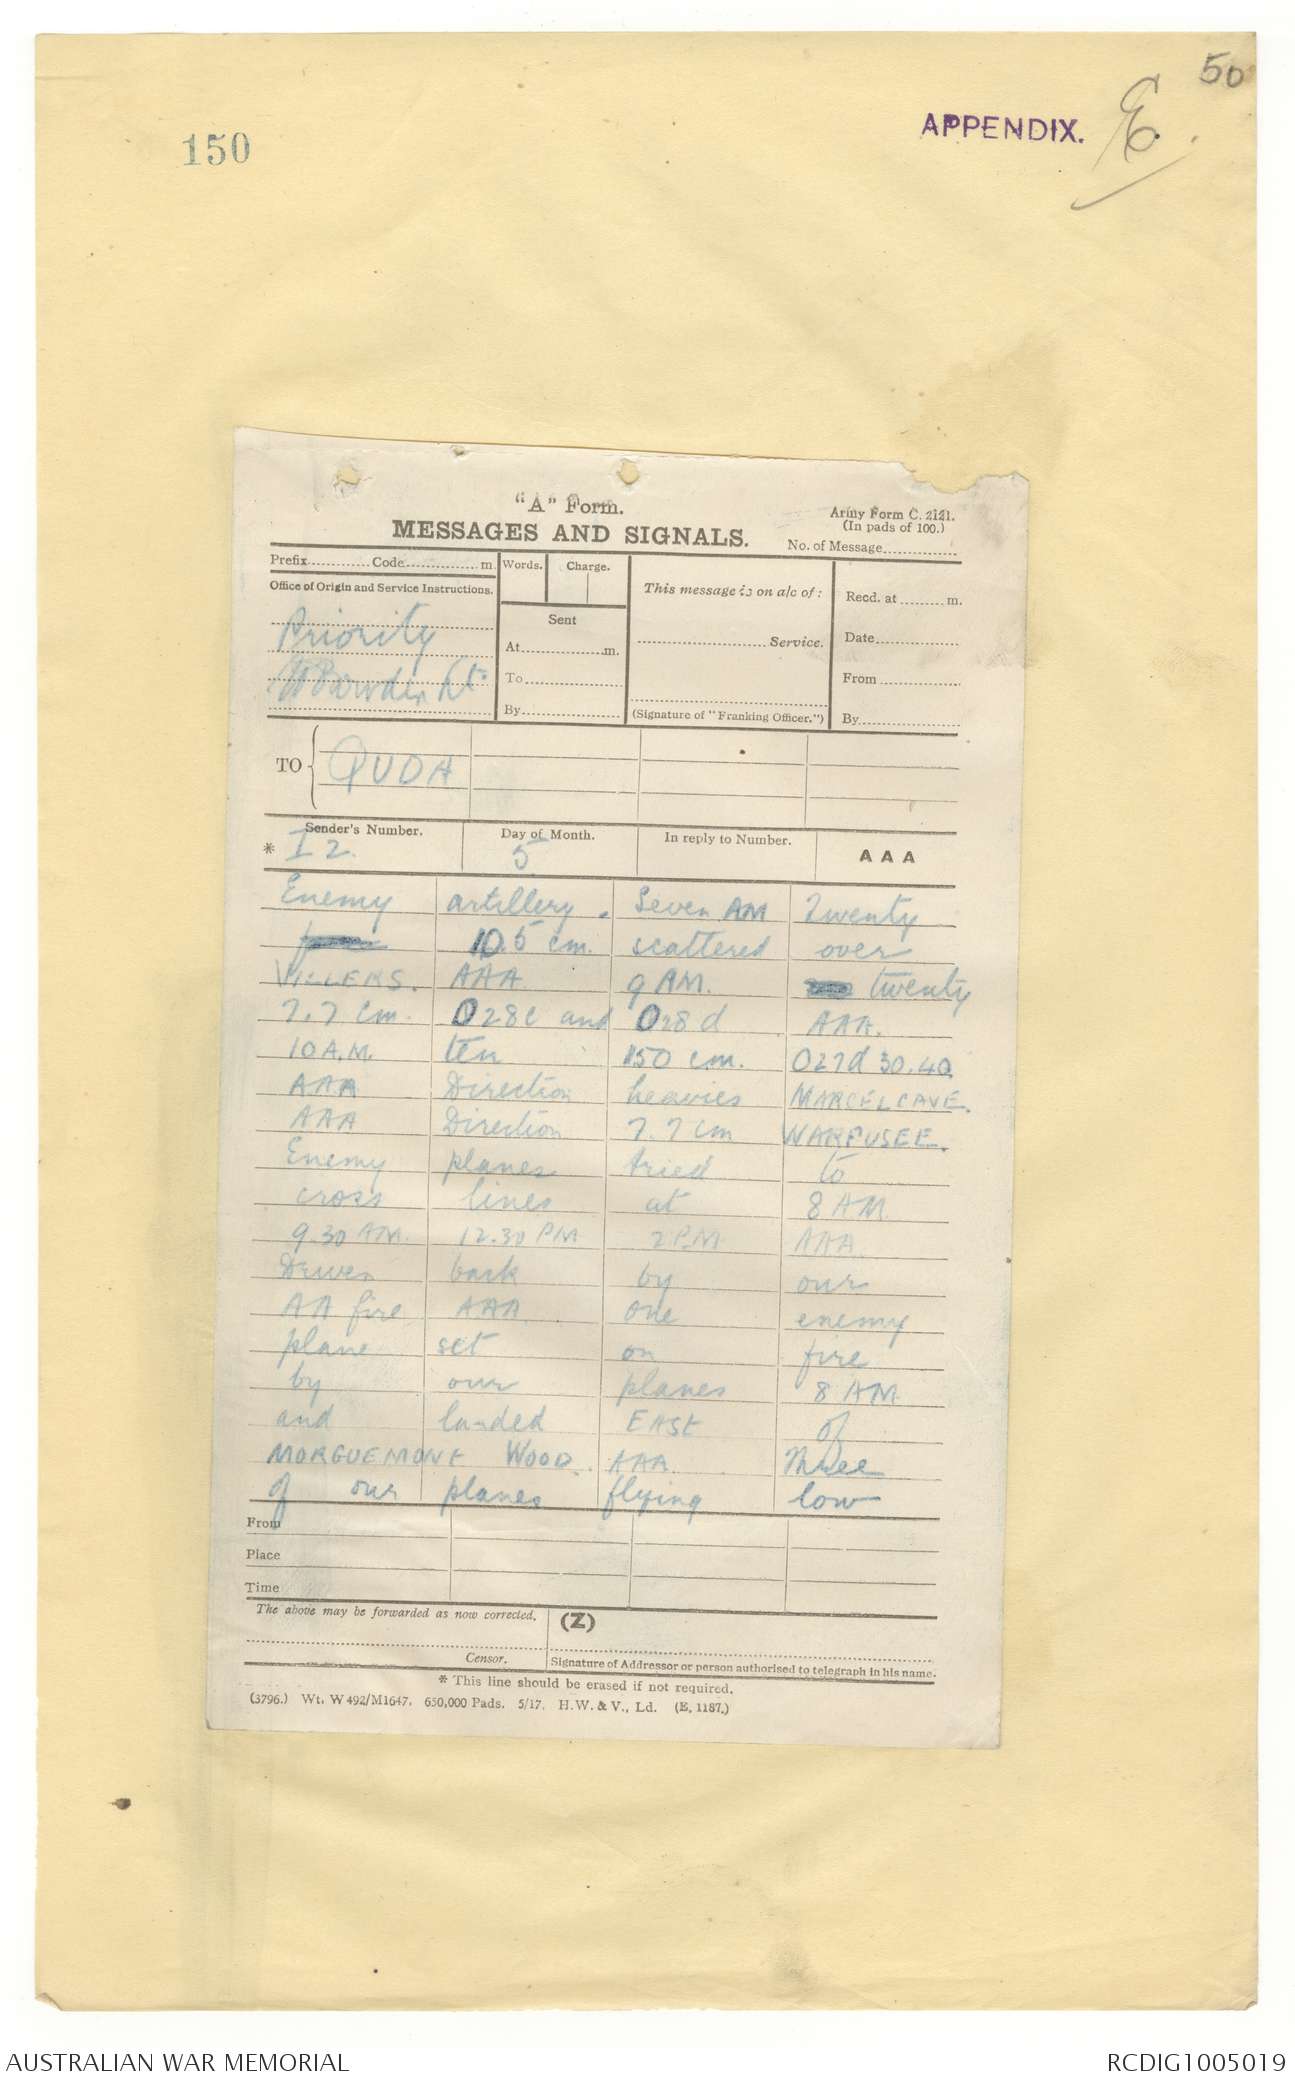 50
150
APPENDIX. E.
"A" Form.
Army Form C. 2121.
MESSAGES AND SIGNALS.
(In pads of 100.)
No. of Message..............
Prefix............Code..............m.
Words.
Charge.
This message is on a/c of :
Recd. at ........m.
Office of Origin and Service Instructions.
Sent
Priority
At..............m.
..............Service.
Date..............
Lt.
To..............
From..............
By..............
(Signature of "Franking Officer.")
By..............
TO QUDA
Sender's Number.
Day of Month.
In reply to Number.
AAA
* I 2.
5
Enemy artillery. Seven AM Twenty
10.5 cm. scattered over
VILLERS. AAA 9 AM. twenty
7.7 cm. O28c and O28d AAA.
10 A.M. ten 150 cm. O27d 30.40
AAA Direction heavies MARCELCAVE.
AAA Direction 7.7 cm WARFUSEE.
Enemy planes tried to
cross lines at 8 AM
9.30 AM. 12.30 PM 2 PM AAA
Driven back by our
AA fire AAA one enemy
plane set on fire
by our planes 8 AM
and landed EAST of
MORGUEMONT WOOD. AAA Three
of our planes flying low
From
Place
Time
The above may be forwarded as now corrected.
(Z)
Censor.
Signature of Addressor or person authorised to telegraph in his name.
* This line should be erased if not required.
(3796.) Wt. W 492/M1647. 650,000 Pads. 5/17. H.W. & V., Ld. (E. 1187.)
AUSTRALIAN WAR MEMORIAL
RCDIG1005019